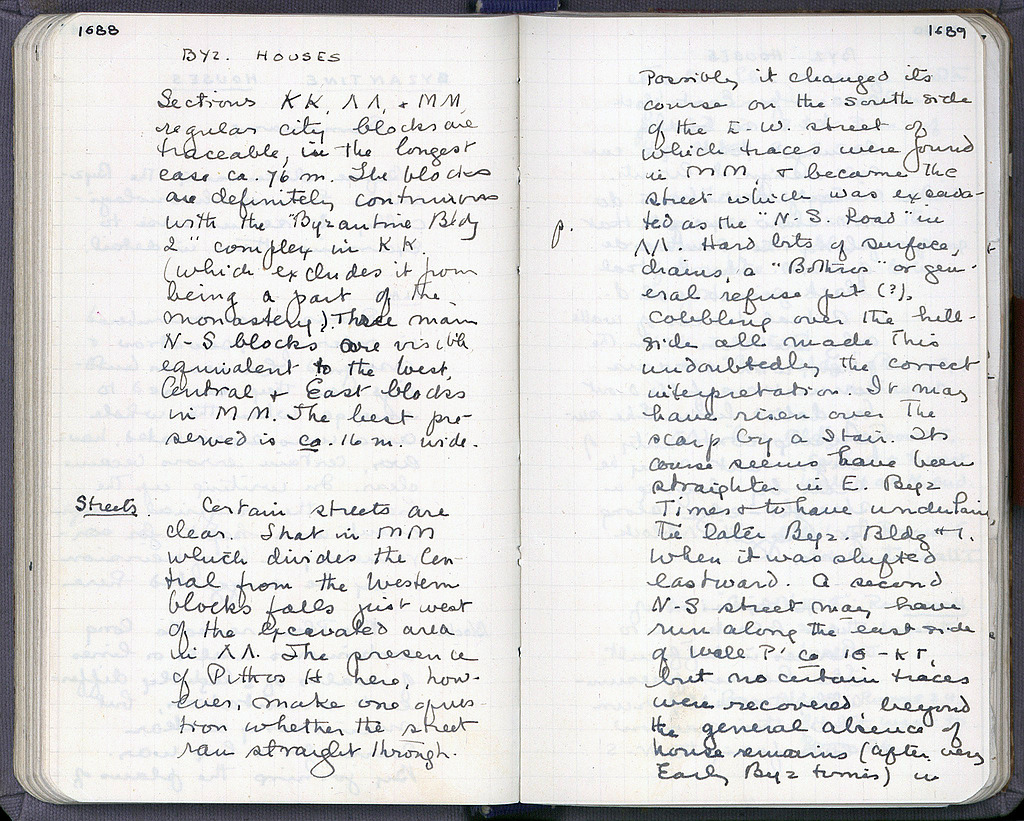 1688
BYZ. HOUSES
Sections KK, ΛΛ, + MM
regular city blocks are
traceable, in the longest
case ca. 76 m. The blocks
are definitely continuous
with the "Byzantine Bldg
2" complex in KK
(which excludes it from
being a part of the
monastery). Three main
N-S blocks are visible
equivalent to the West,
Central + East blocks
in MM. The best pre-
served is ca. 16 m. wide.
Streets. Certain streets are
clear. That in MM
which divides the Cen-
tral from the Western
blocks falls just west
of the excavated area
in ΛΛ. The presence
of Pithos H here, how-
ever, make one ques-
tion whether the street
ran straight through.
1689
Possibly it changed its
course on the South side
of the E-W. street of
which traces were found
in MM, + became the
street which was excava-
ted as the "N-S. Road" in
p. ΛΛ. Hard bits of surface,
drains, a "Bothros" or gen-
eral refuse pit (?),
cobbling over the hill-
side all made this
undoubtedly the correct
interpretation. It may
have risen over the
scarp by a stair. Its
course seems have been
straighter in E. Byz
Times + to have underlain
the Later Byz. Bldg # 1.
when it was shifted
eastward. A second
N-S street may have
run along the east side
of Wall P' ca 10 - KT,
but no certain traces
were recovered beyond
the general absence of
house remains (after very
Early Byz times) in